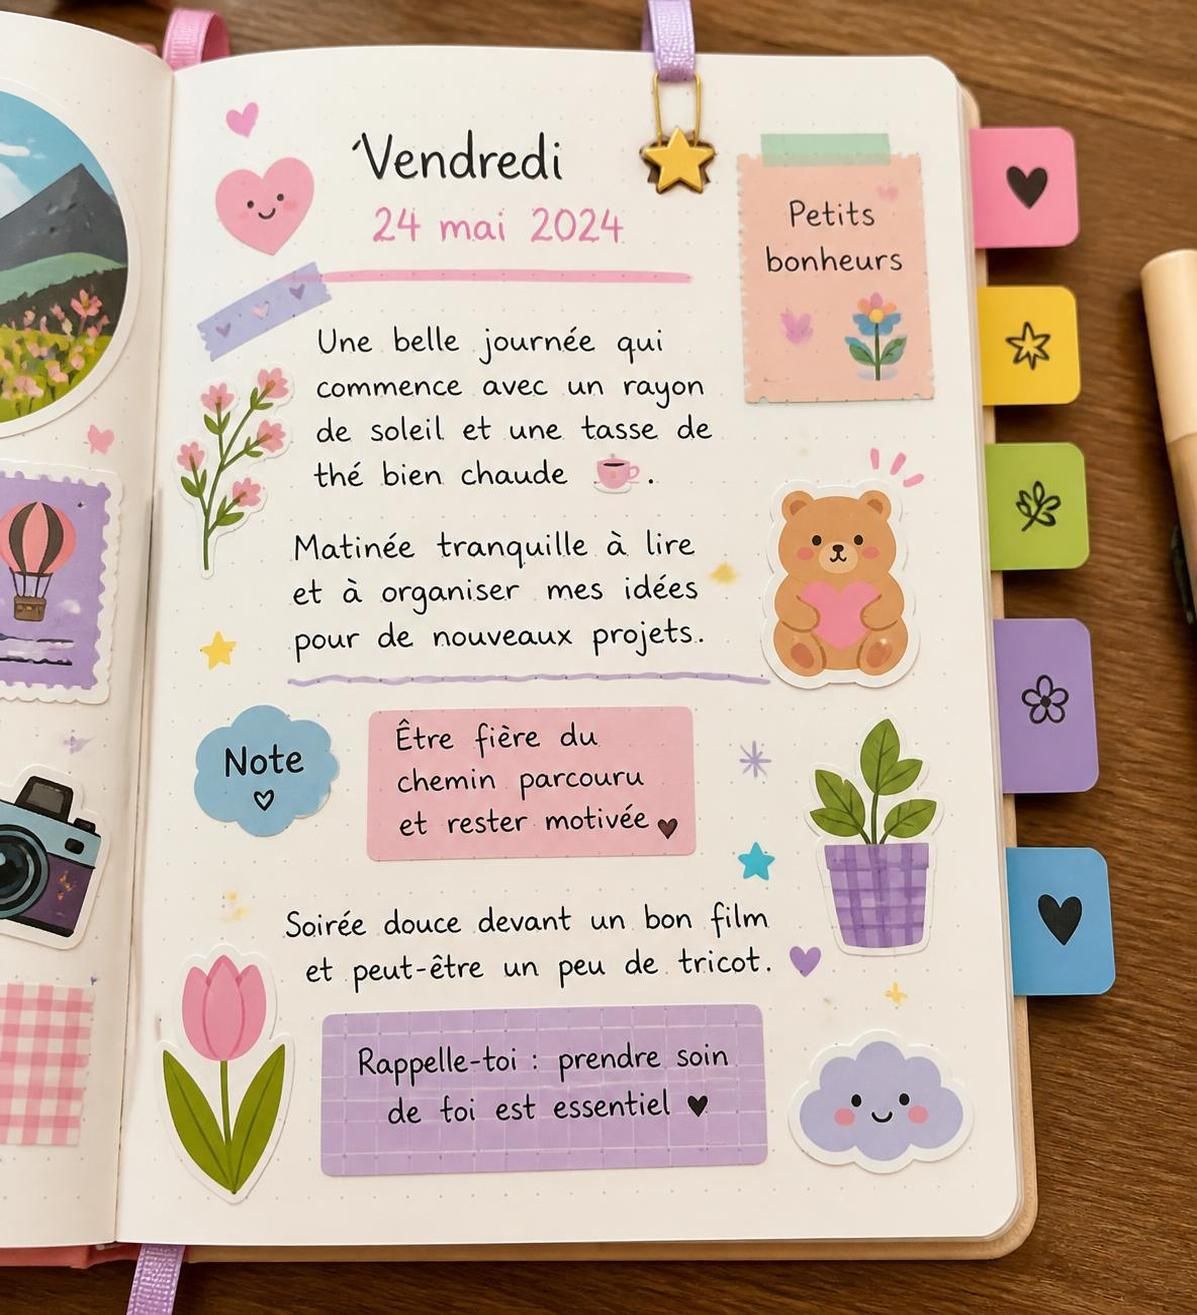 Vendredi
24 mai 2024
Petits
bonheurs
Une belle journée qui
commence avec un rayon
de soleil et une tasse de
thé bien chaude .
Matinée tranquille à lire
et à organiser mes idées
pour de nouveaux projets.
Note
Être fière du
chemin parcouru
et rester motivée
Soirée douce devant un bon film
et peut-être un peu de tricot.
Rappelle-toi : prendre soin
de toi est essentiel ♥